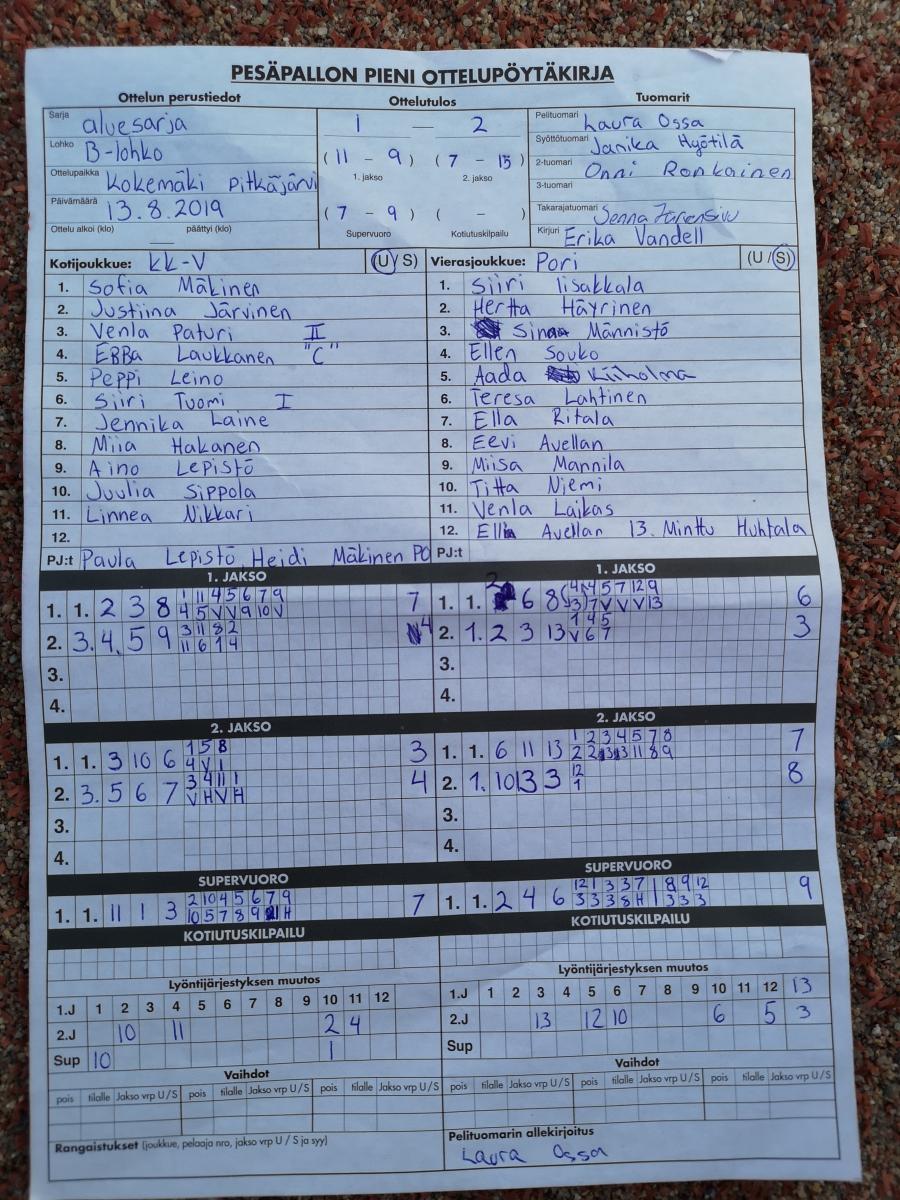 PESÄPALLON PIENI OTTELUPÖYTÄKIRJA
Ottelun perustiedot
Sarja aluesarja
Lohko B-lohko
Ottelupaikka Kokemäki Pitkäjärvi
Päivämäärä 13.8.2019
Ottelu alkoi (klo) päättyi (klo)
Ottelutulos
1 — 2
(11 - 9) (7 - 15)
1. jakso 2. jakso
(7 - 9) ( - )
Supervuoro Kotiutuskilpailu
Tuomarit
Pelituomari Laura Ossa
Syöttötuomari Janika Hyötilä
2-tuomari Onni Ronkainen
3-tuomari
Takarajatuomari Senna
Kirjuri Erika Vandell
Kotijoukkue: KK-V (U/S)
1. Sofia Mäkinen
2. Justiina Järvinen
3. Venla Paturi II
4. EBBa Laukkanen "C"
5. Peppi Leino
6. Siiri Tuomi I
7. Jennika Laine
8. Miia Hakanen
9. Aino Lepistö
10. Juulia Sippola
11. Linnea Nikkari
12.
PJ:t Paula Lepistö, Heidi Mäkinen PO
Vierasjoukkue: Pori (U/S)
1. Siiri Iisakkala
2. Hertta Häyrinen
3. Sinna Männistö
4. Ellen Souko
5. Aada Kiiholma
6. Teresa Lahtinen
7. Ella Ritala
8. Eevi Avellan
9. Miisa Mannila
10. Titta Niemi
11. Venla Laikas
12. Ella Avellan 13. Minttu Huhtala
PJ:t
1. JAKSO
1. 1. 2 3 8 1 11 4 5 6 7 9 7
4 5 V V 9 10 V
2. 3. 4. 5 9 3 11 8 2 4
11 6 1 4
3.
4.
1. JAKSO
1. 1. 2 6 8 4 4 5 7 12 9 6
3 7 V V V 13
2. 1. 2 3 13 1 4 5 3
V 6 7
3.
4.
2. JAKSO
1. 1. 3 10 6 1 5 8 3
4 V 1
2. 3. 5 6 7 3 4 11 1 4
V H V H
3.
4.
2. JAKSO
1. 1. 6 11 13 1 2 3 4 5 7 8 7
2 2 3 3 11 8 9
2. 1. 10 13 3 12 8
1
3.
4.
SUPERVUORO
1. 1. 11 1 3 2 10 4 5 6 7 9 7
10 5 7 8 9 H
SUPERVUORO
1. 1. 2 4 6 12 1 3 3 7 1 8 9 12 9
3 3 3 8 H 1 3 3 3
KOTIUTUSKILPAILU
KOTIUTUSKILPAILU
Lyöntijärjestyksen muutos
1.J 1 2 3 4 5 6 7 8 9 10 11 12
2.J 10 11 2 4
Sup 10 1
Lyöntijärjestyksen muutos
1.J 1 2 3 4 5 6 7 8 9 10 11 12 13
2.J 13 12 10 6 5 3
Sup
Vaihdot
pois tilalle Jakso vrp U/S pois tilalle Jakso vrp U/S pois tilalle Jakso vrp U/S
Vaihdot
pois tilalle Jakso vrp U/S pois tilalle Jakso vrp U/S pois tilalle Jakso vrp U/S
Rangaistukset (joukkue, pelaaja nro, jakso vrp U / S ja syy)
Pelituomarin allekirjoitus
Laura Ossa